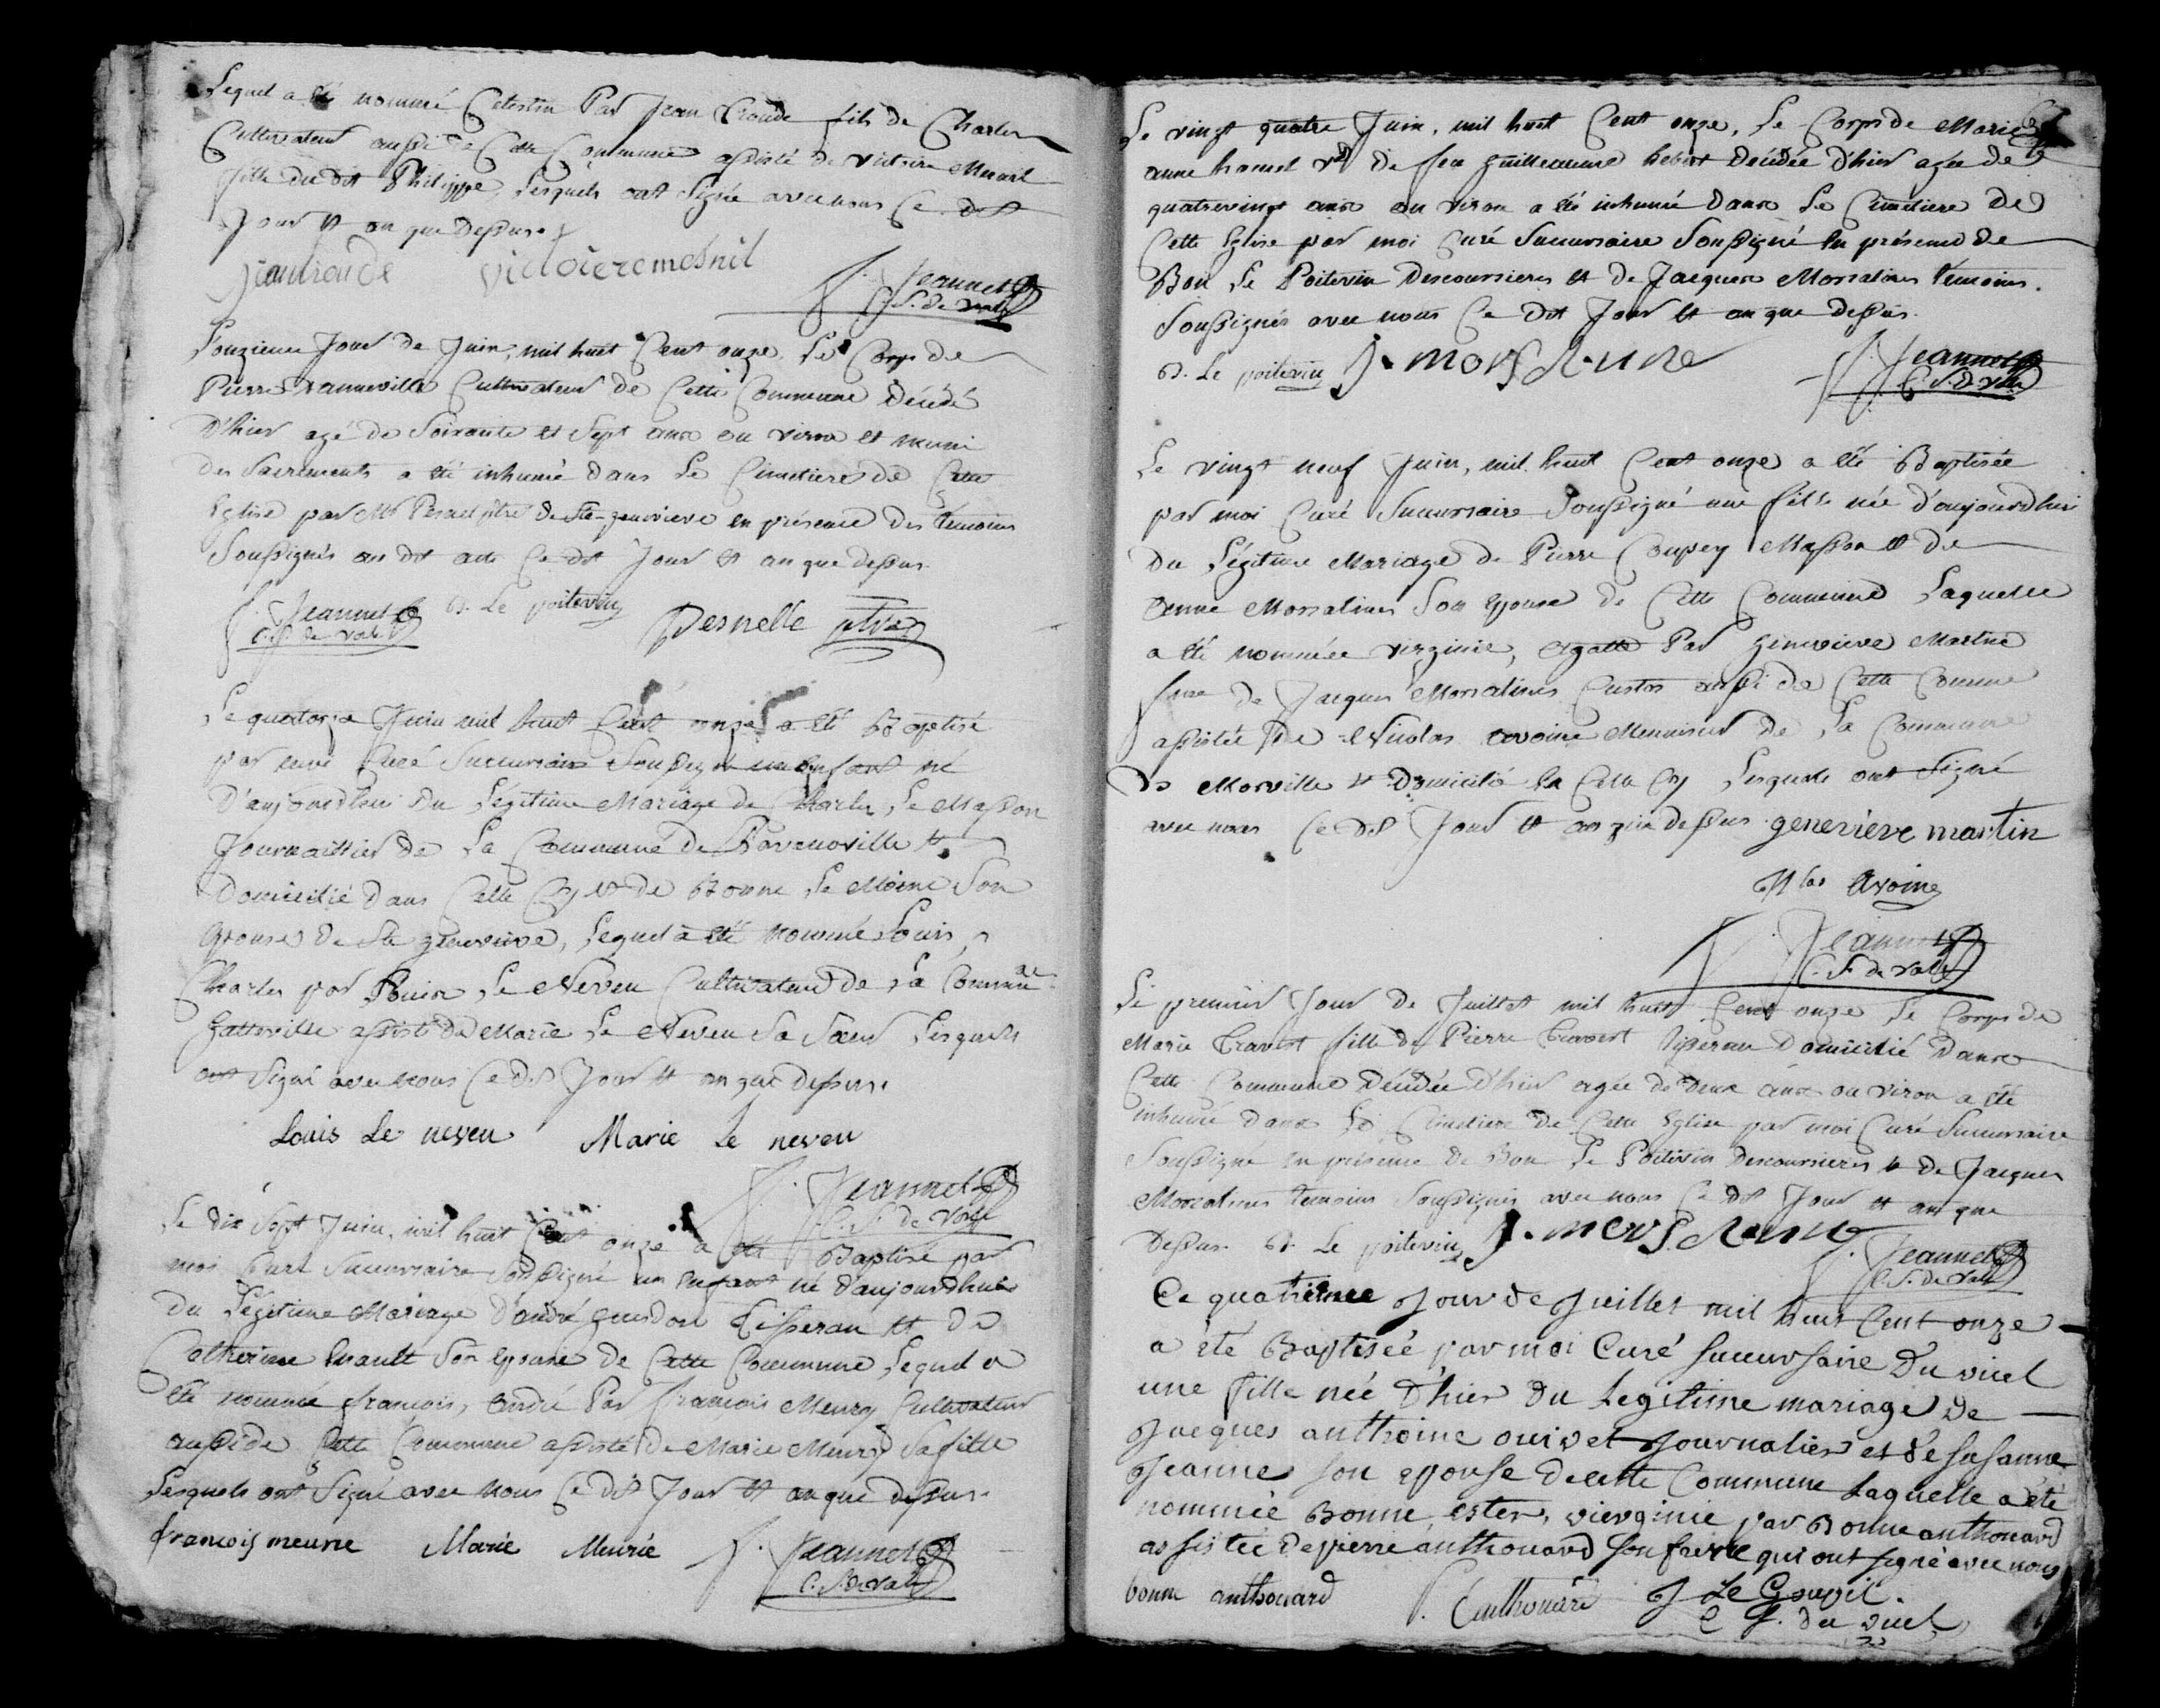 Lequel a été nommé Celestin Par Jean Croude fils de Charles
Cultivateur aussi de Cette Commune assisté de victoire Menil
fille du dit Philippe, Lesquels ont signé avec nous Ce dit
Jour et an que dessus.
victoiere mesnil
J. Jeannet
C. S. de Vale
L'onzieme Jour de Juin, mil huit Cent onze, Le Corps de
Pierre Vanneville Cultivateur de Cette Commune décédé
D'hier agé de Soixante et Sept ans ou viron et muni
des Sacrements a été inhumé dans Le Cimetiere de Cette
Eglise par Mr Pesnel ptre de Ste-genevieve en présence des témoins
Soussignés au dit acte Ce dit Jour et an que dessus.
J. Jeannet B. Le poitevin Pesnelle ptre
C. S. de Vale
Le quatorze Juin mil huit Cent onze a été Baptisé
par moi Curé Succursaire Soussigné un enfant né
D'aujourdhui du Légitime Mariage de Charles Le Masson
Journaillier de La Commune de Ravenoville et
domicilié dans Cette Cy et de Bonne Le Moine Son
Epouse de Ste genevieve, Lequel a été nommé Louis,
Charles par Louis Le Neveu Cultivateur de La Commune
Gatteville assisté de Marie Le Neveu Sa Sœur Lesquels
ont signé avec nous Ce dit Jour et an que dessus.
Louis Le neveu Marie Le neveu
J. Jeannet
C. S. de Vale
Le dix Sept Juin, mil huit Cent onze a été Baptisé par
moi Curé Succursaire Soussigné un enfant né d'aujourdhui
Du Légitime Mariage d'andré Gueudon Tisseran et de
Catherine Enault Son Epouse de Cette Commune Lequel a
été nommé françois, andré Par françois Meury Cultivateur
aussi de Cette Commune assisté de Marie Meury Sa fille
Lesquels ont Signé avec nous Ce dit Jour et an que dessus.
françois meurie Marie Meurie J. Jeannet
C. S. de Vale
Le vingt quatre Juin, mil huit Cent onze, Le Corps de Marie
anne hamel Ve de feu guilleaume hebert décédée d'hier agée de
quatrevingt ans ou viron a été inhumé dans Le Cimetiere de
Cette Eglise par moi Curé Succursaire Soussigné en présence de
Bon Le Poitevin Descoursieres et de Jacques Morsalines témoins
Soussignés avec nous Ce dit Jour et an que dessus.
B. Le poitevin J. morsaline J. Jeannet
C. S. de Vale
Le vingt neuf Juin, mil huit Cent onze a été Baptisée
par moi Curé Succursaire Soussigné une fille née d'aujourdhui
Du Légitime Mariage de Pierre Coupey Masson et de
anne Morsalines Son Epouse de Cette Commune Laquelle
a été nommée virginie, agatte Par Genevieve Martine
fme de Jacques Morsalines Custos aussi de Cette Comune
assistée de Nicolas avoine Menuisier de La Commune
de Morville et domicilié En Cette Cy Lesquels ont Signé
avec nous Ce dit Jour et an que dessus. genevieve martin
Nlas Avoine
J. Jeannet
C. S. de Vale
Le premier Jour de Juillet mil huit Cent onze Le Corps de
Marie Travert fille de Pierre Travert Tisseran domicilié dans
Cette Commune décédée d'hier agée de deux ans ou viron a été
inhumé dans Le Cimetiere de Cette Eglise par moi Curé Succursaire
Soussigné en présence de Bon Le Poitevin Descoursieres et de Jacques
Morsalines témoins Soussignés avec nous Ce dit Jour et an que
Dessus. B. Le poitevin J. morsaline J. Jeannet
C. S. de Vale
Ce quatrieme Jour de Juillet mil huit Cent onze
a été Baptisée par moi Curé succursaire Du vicel
une fille née d'hier du Legitime mariage de
Jacques anthoine ouivet Journalier et de susanne
Jeanne son epouse de cette Commune Laquelle a été
nommée Bonne, ester, vierginie par Bonne anthouard
assistée de pierre anthouard son frere qui ont signé avec nous
bonne anthouard P. anthouard J Le Goupil.
C S. du vicel